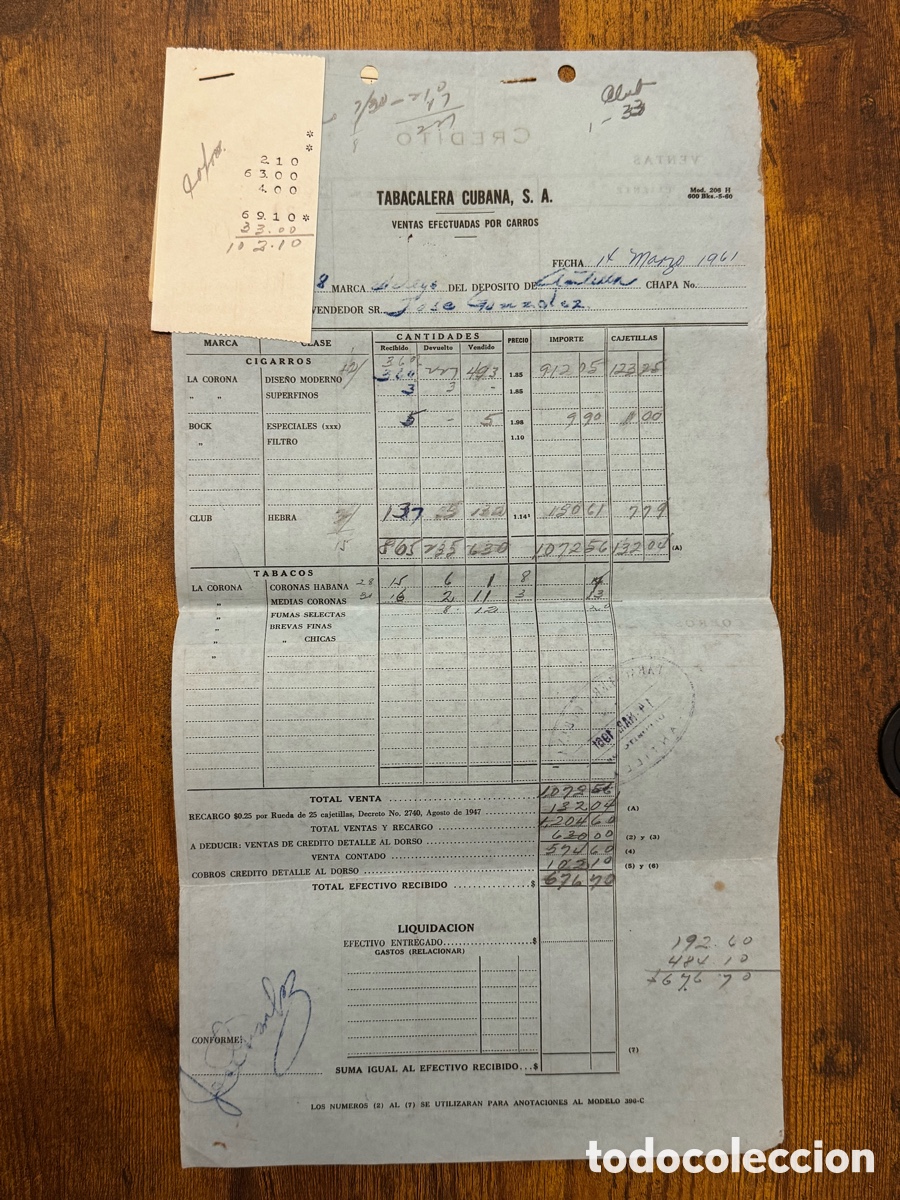 Club
1 - 33
CREDITO
VENTAS
*
*
210
63.00
4.00
69.10*
33.00
102.10
TABACALERA CUBANA, S. A.
Mod. 206 H
600 Bks.-5-60
VENTAS EFECTUADAS POR CARROS
FECHA 14 Marzo 1961
8 MARCA DEL DEPOSITO DE Antilla CHAPA No.
VENDEDOR SR. Jose Gonzalez
MARCA CLASE CANTIDADES PRECIO IMPORTE CAJETILLAS
Recibido Devuelto Vendido
CIGARROS
360
LA CORONA DISEÑO MODERNO 360 493 1.85 912 05 123 25
" " SUPERFINOS 3 3 - 1.85
BOCK ESPECIALES (xxx) 5 - 5 1.98 9 90 1 00
" FILTRO 1.10
CLUB HEBRA 137 1.14¹ 150 61 7 79
15 865 235 630 1072 56 132 04 (A)
TABACOS
LA CORONA CORONAS HABANA 28 15 6 1 8
" MEDIAS CORONAS 6 2 11 3 13
" FUMAS SELECTAS 8 12
" BREVAS FINAS
" " CHICAS
"
TOTAL VENTA 1072 56
RECARGO $0.25 por Rueda de 25 cajetillas, Decreto No. 2740, Agosto de 1947 132 04 (A)
TOTAL VENTAS Y RECARGO 1,204 60
A DEDUCIR: VENTAS DE CREDITO DETALLE AL DORSO 630 00 (2) y (3)
VENTA CONTADO 574 60 (4)
COBROS CREDITO DETALLE AL DORSO 102 10 (5) y (6)
TOTAL EFECTIVO RECIBIDO $ 676 70
LIQUIDACION
EFECTIVO ENTREGADO $
GASTOS (RELACIONAR)
192.60
484.10
676.70
CONFORME:
(7)
SUMA IGUAL AL EFECTIVO RECIBIDO...$
LOS NUMEROS (2) AL (7) SE UTILIZARAN PARA ANOTACIONES AL MODELO 306-C
todocoleccion